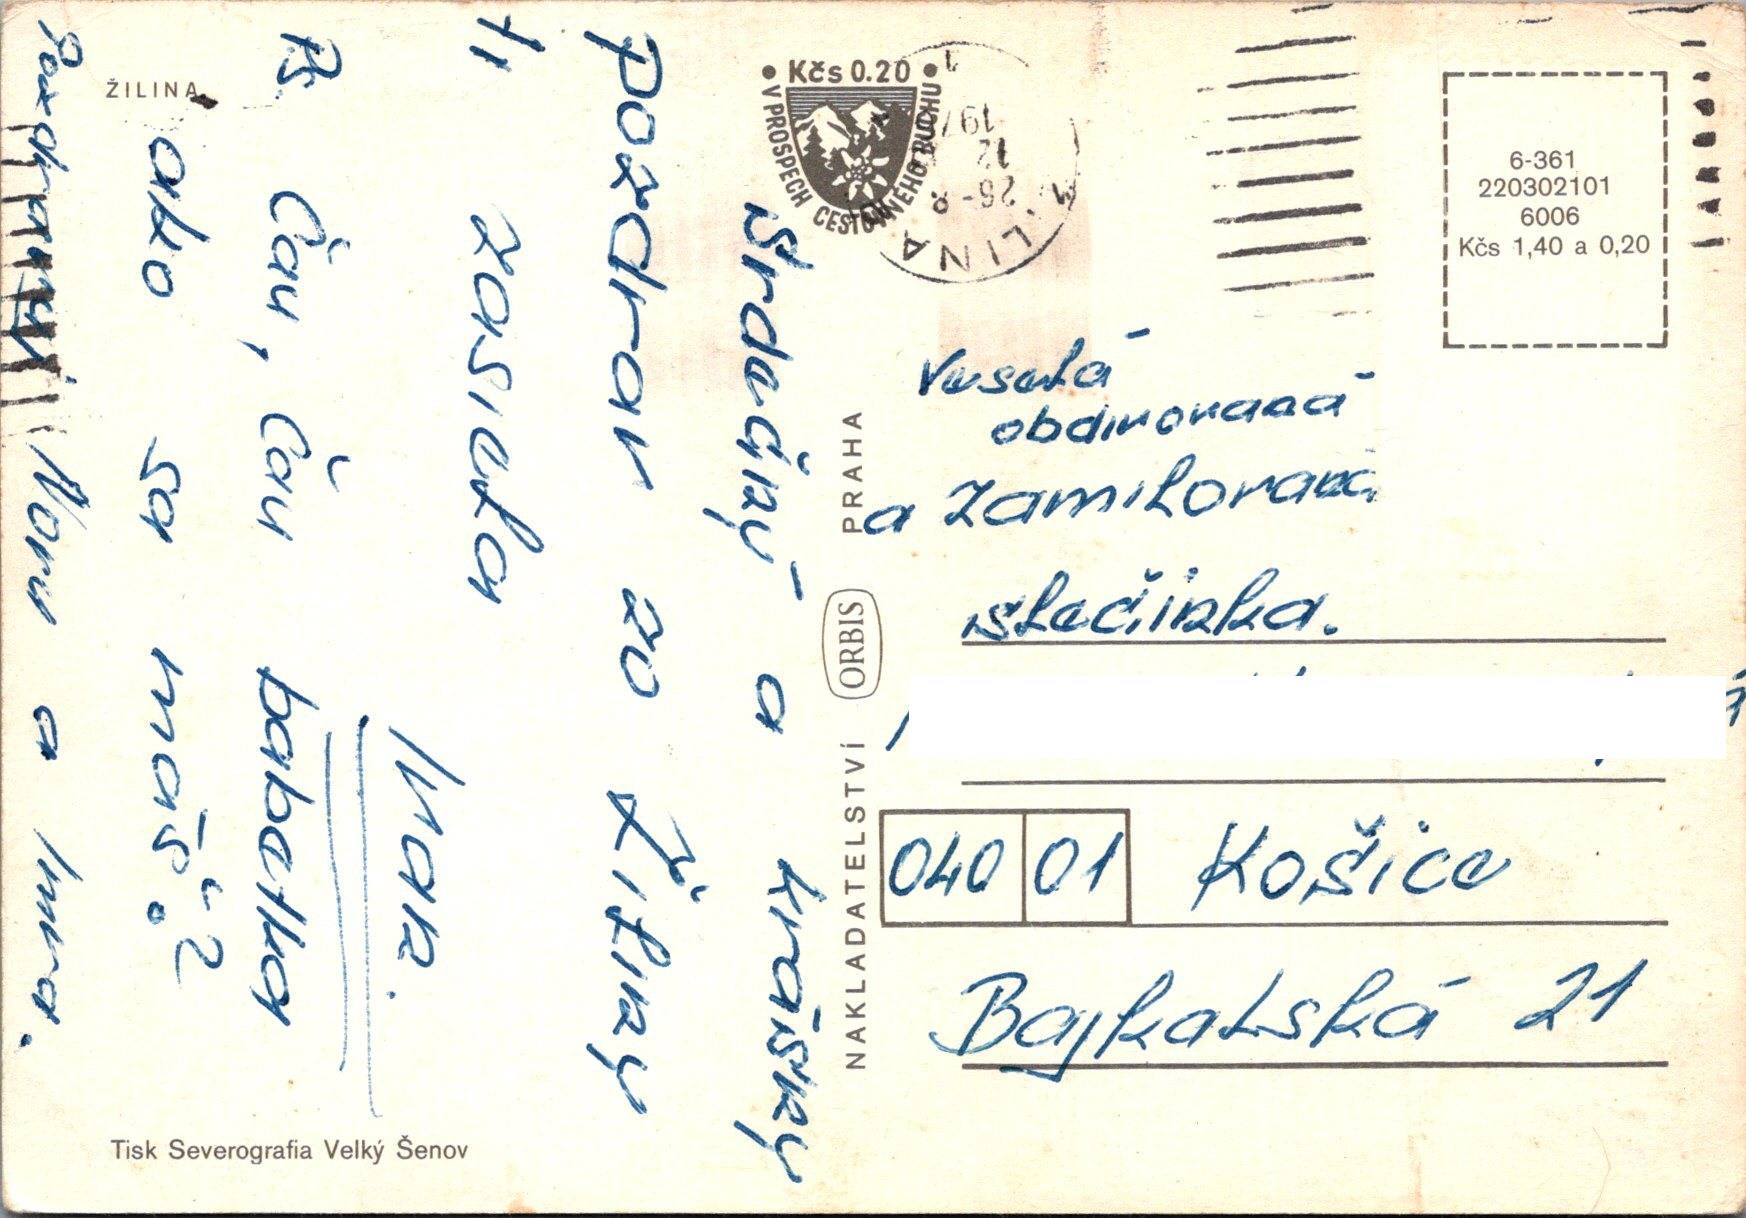 ŽILINA
Srdečný a krásny
pozdrav zo Žiliny
ti zasiela
Ivan.
Ps Čau, čau babetka
ako sa máš?
Pozdravuj Noru a Imra.
Tisk Severografia Velký Šenov
NAKLADATELSTVÍ ORBIS PRAHA
Kčs 0.20
V PROSPECH CESTOVNÉHO RUCHU
26.-8.
12
197
6-361
220302101
6006
Kčs 1,40 a 0,20
Veselá
obdivovaná
a zamilovaná
slečinka.
040 01 Košice
Bajkalská 21